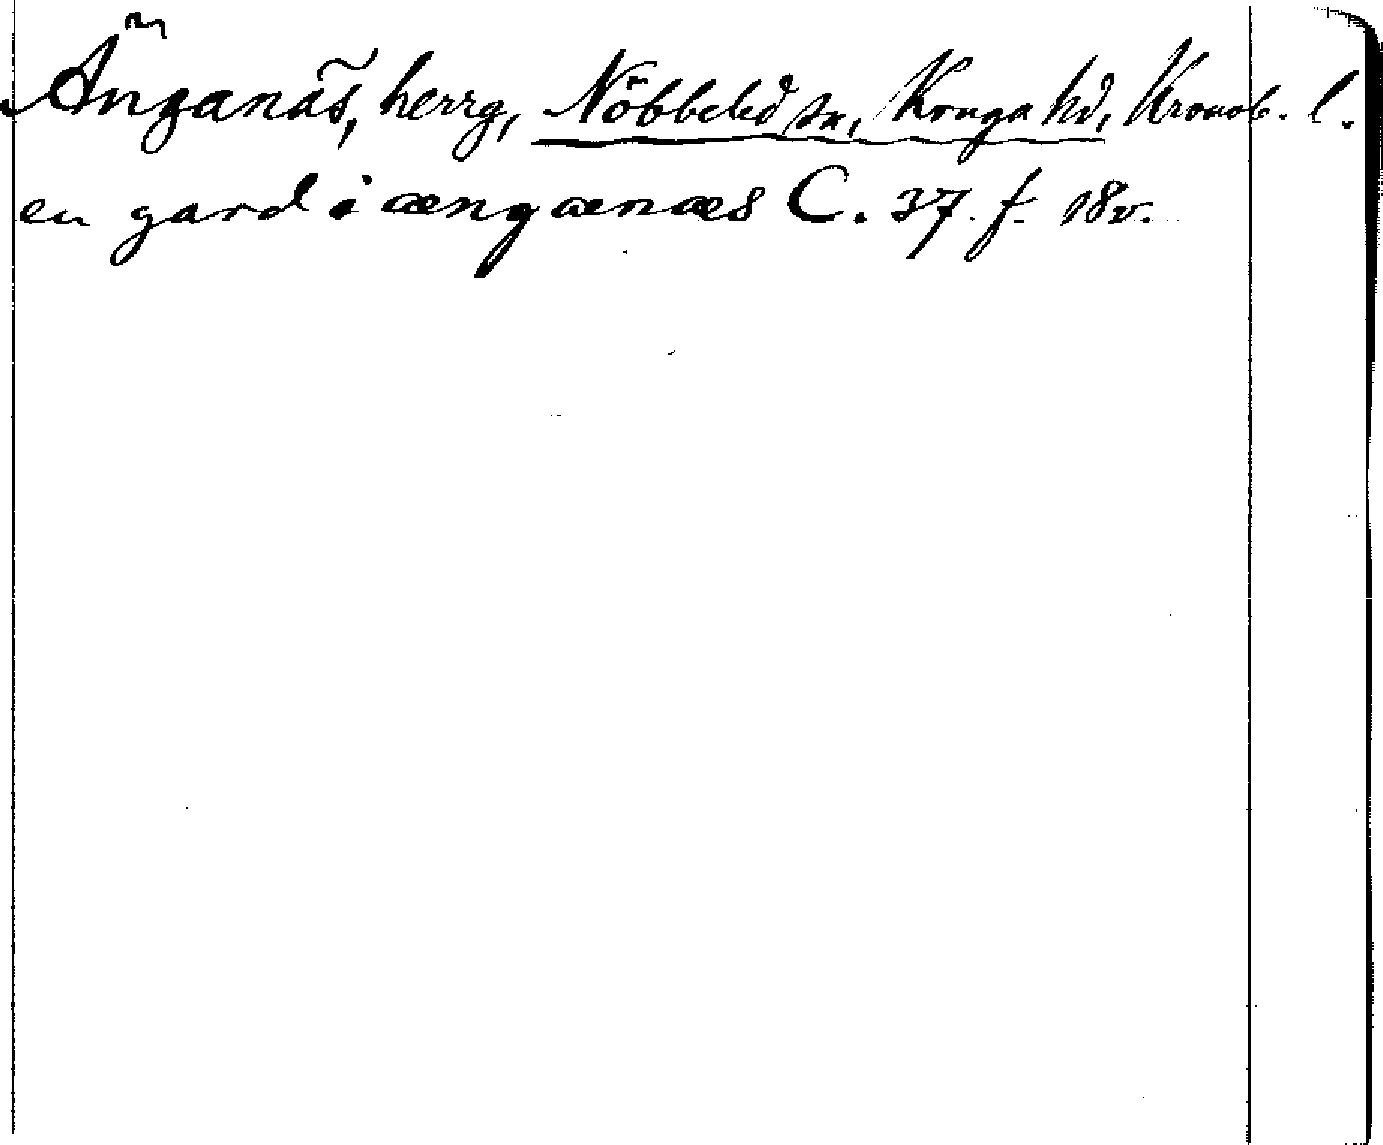 Änganäs, herrg, Nöbbeled sn, Konga hd, Kronob. l.
en gard i ænganæs C. 37. f. 18v.